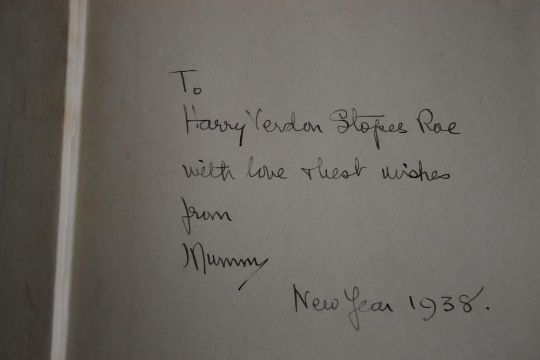 To
Harry Verdon Stopes Roe
with love & best wishes
from
Mummy
New Year 1938.